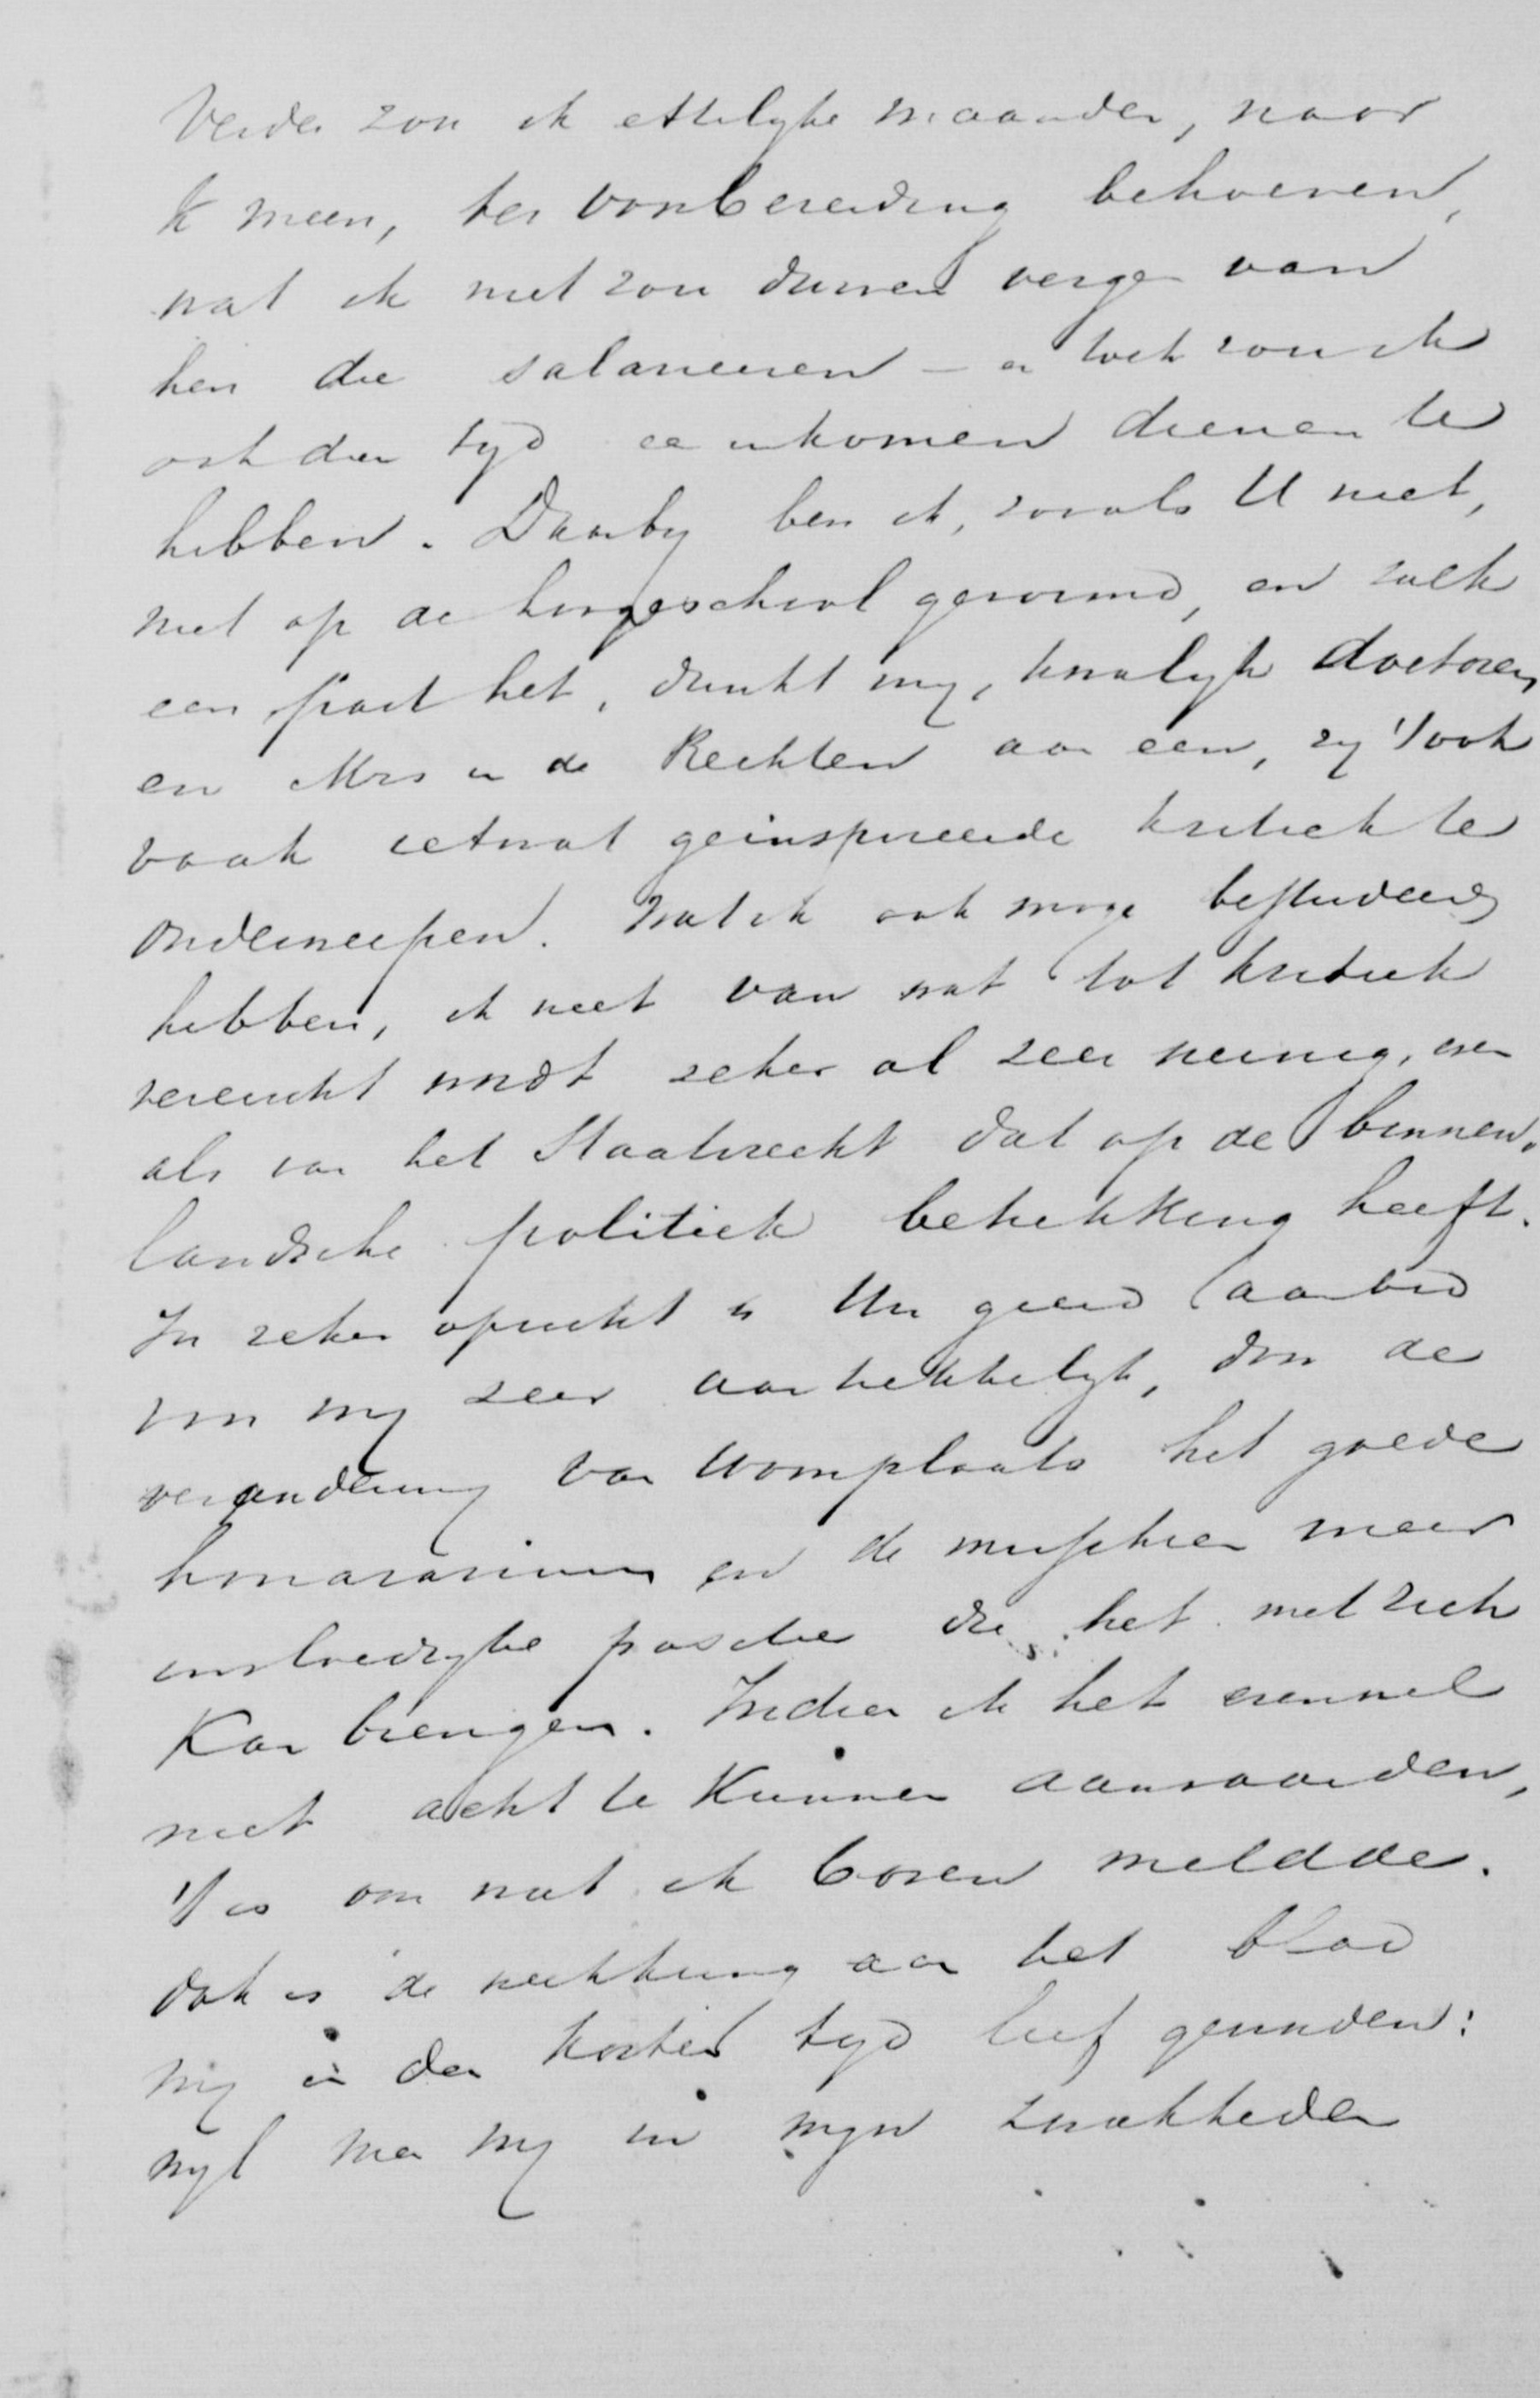 Verder zou ik ettelyke maanden, naar
ik meen, ter voorbereiding behoeven,
wat ik niet zou durven vergen van
hen die salarieeren – en toch zou ik
ook dien tyd een inkomen dienen te
hebben. Daarby ben ik, zooals U weet,
niet op de hoogeschool gevormd, en zulk
een past het, dunkt my, kwalyk doctoren
en Mrs in de Rechten aan een, zy 't ook
vaak ietwat geïnspireerde kritiek te
onderwerpen. Wat ik ook moge bestudeerd
hebben, ik weet van wat tot kritiek
vereischt wordt zeker al zeer weinig, even
als van het Staatsrecht dat op de binnen-
landsche politiek betrekking heeft.
In zeker opzicht is Uw geëerd aanbod
voor my zeer aantrekkelyk, door de
verandering van woonplaats het goede
honorarium en de misschien meer
onafhankelyke positie die het met zich
kan brengen. Indien ik het evenwel
niet acht te kunnen aanvaarden,
't is om wat ik boven meldde.
Ook is de werkkring aan het blad
my in den korten tyd lief geworden:
wyl men my in myn zwakheden